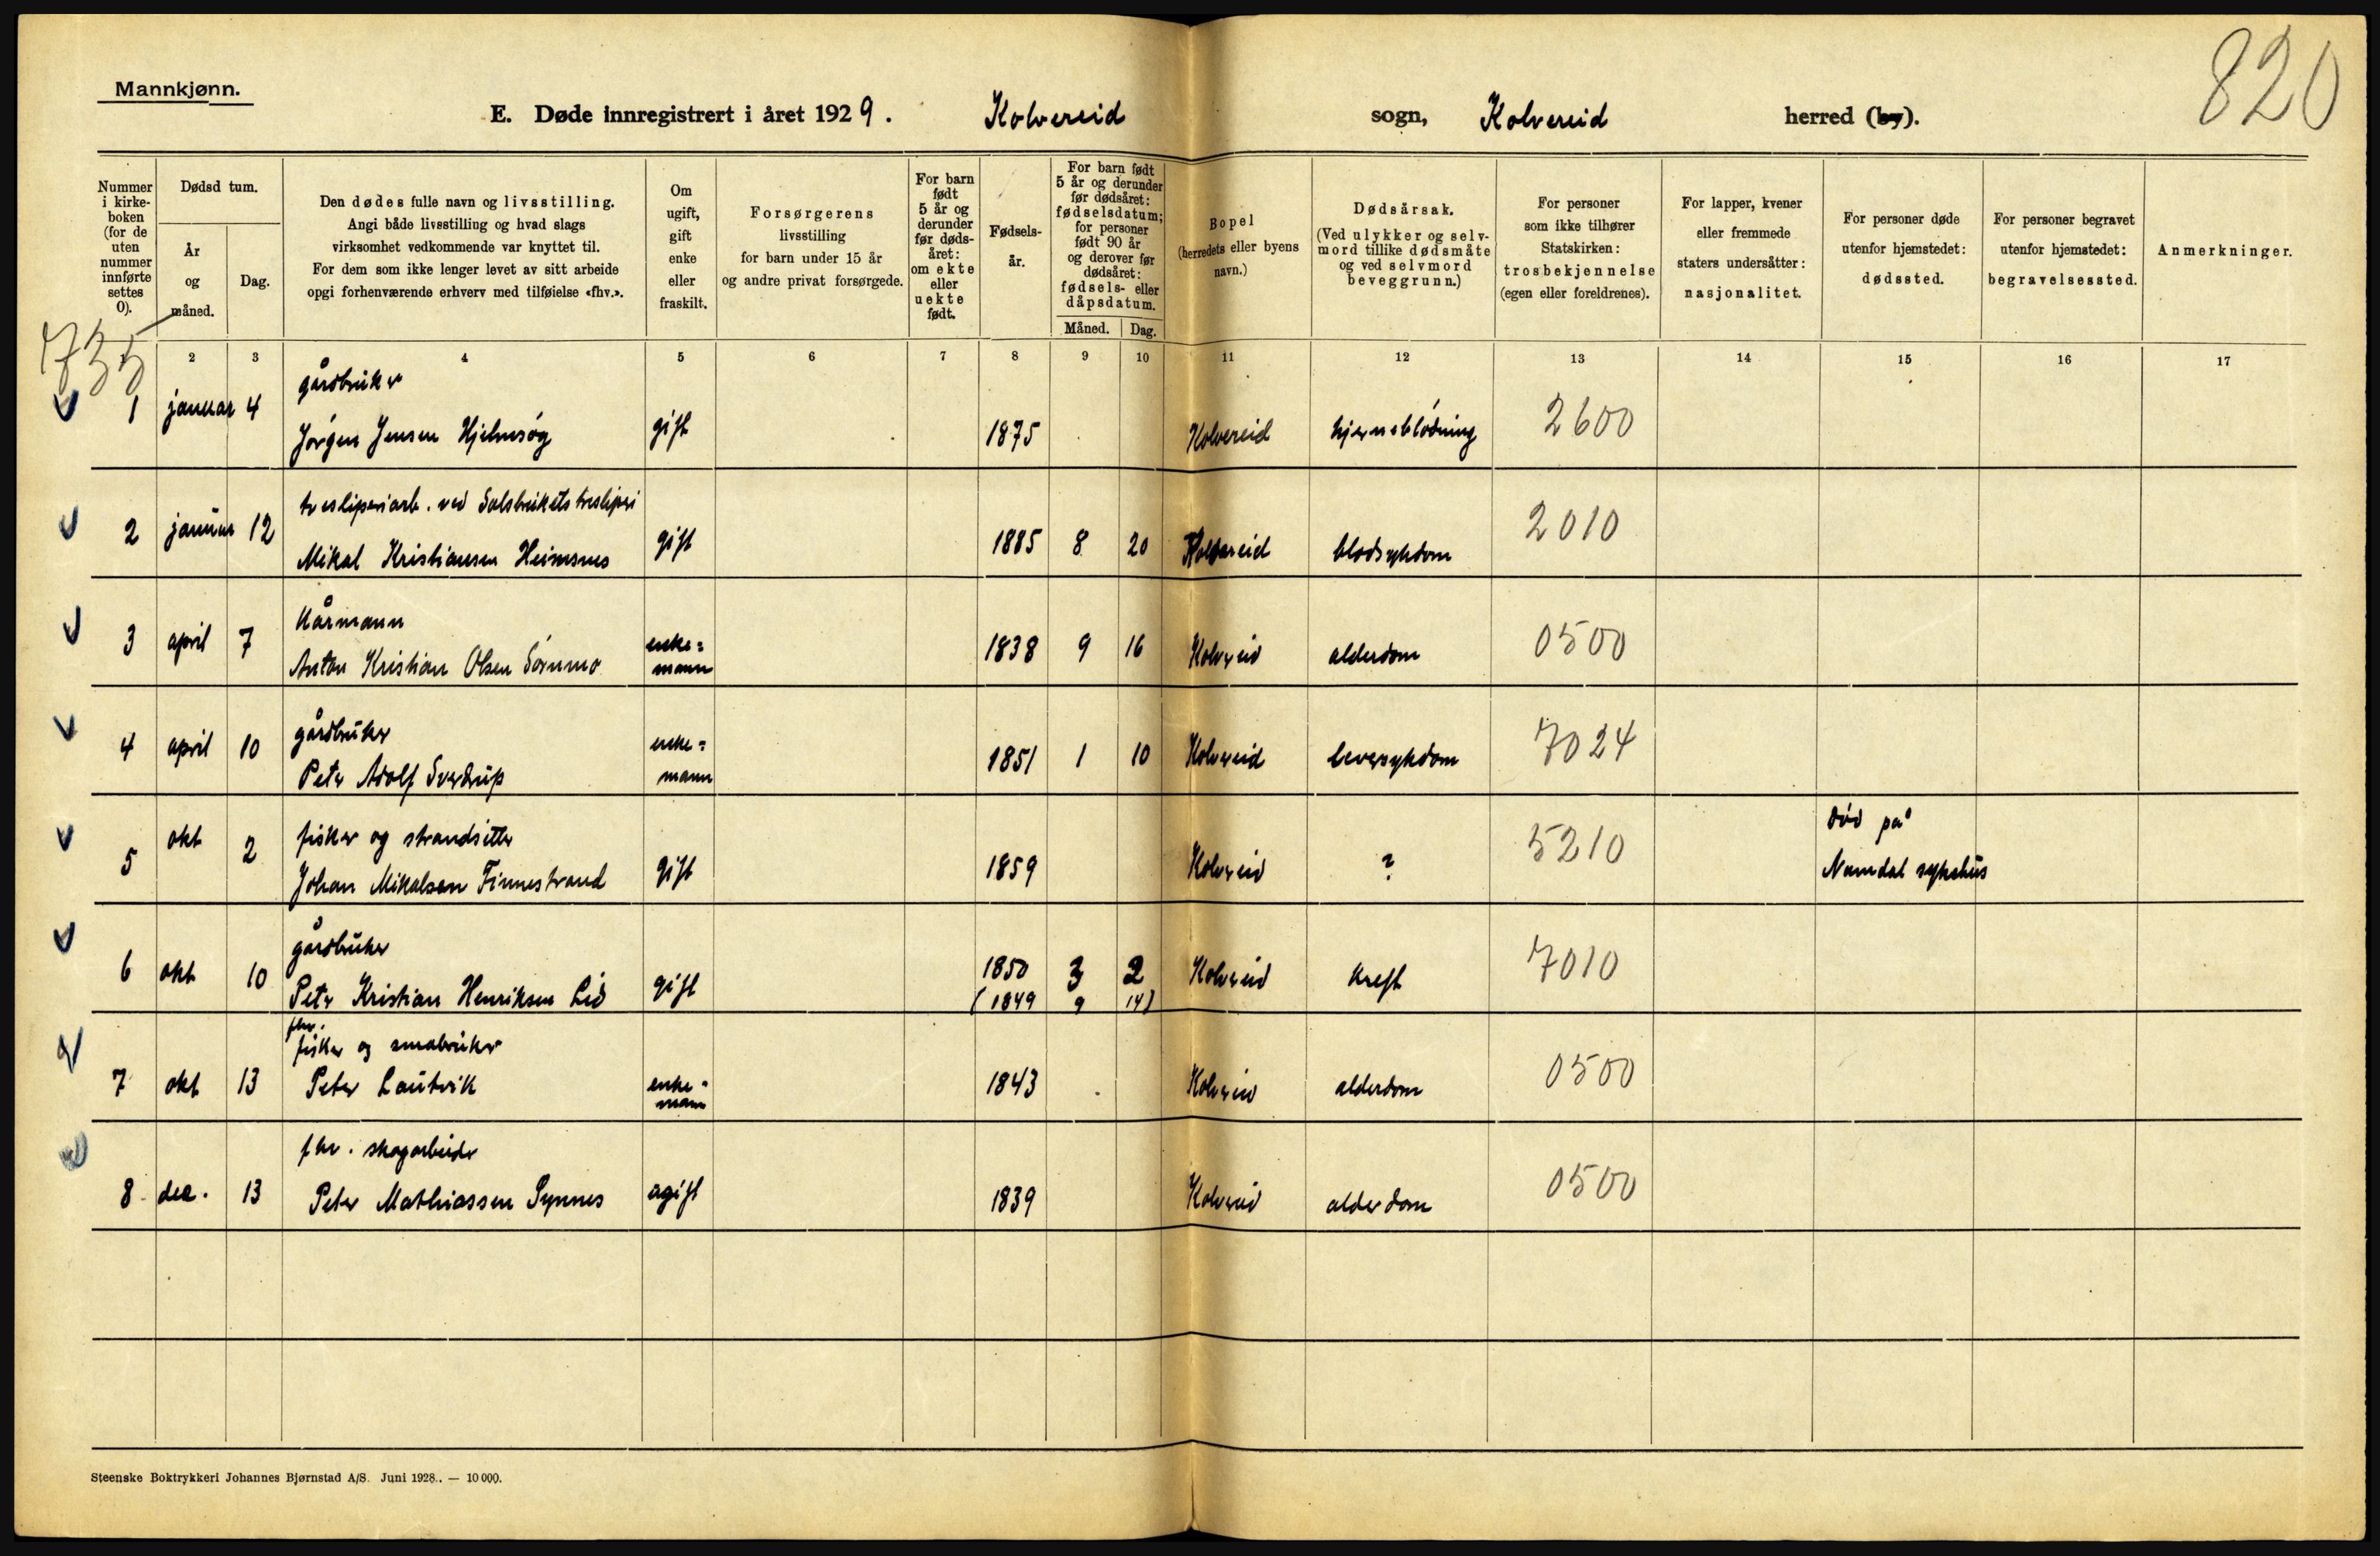 820
Mannkjønn.
E. Døde innregistrert i året 1929. Kolvereid sogn, Kolvereid herred (by).
Nummer i kirke-boken (for de uten nummer innførte settes 0).
Dødsd tum.
År og måned.
Dag.
Den dødes fulle navn og livsstilling.
Angi både livsstilling og hvad slags
virksomhet vedkommende var knyttet til.
For dem som ikke lenger levet av sitt arbeide
opgi forhenværende erhverv med tilføielse «fhv.».
Om ugift, gift enke eller fraskilt.
Forsørgerens
livsstilling
for barn under 15 år
og andre privat forsørgede.
For barn født 5 år og derunder før døds-året: om ekte eller uekte født.
Fødsels-år.
For barn født 5 år og derunder før dødsåret: fødselsdatum; for personer født 90 år og derover før dødsåret: fødsels- eller dåpsdatum.
Måned. Dag.
Bopel
(herredets eller byens
navn.)
Dødsårsak.
(Ved ulykker og selv-
mord tillike dødsmåte
og ved selvmord
beveggrunn.)
For personer
som ikke tilhører
Statskirken:
trosbekjennelse
(egen eller foreldrenes).
For lapper, kvener
eller fremmede
staters undersåtter:
nasjonalitet.
For personer døde
utenfor hjemstedet:
dødssted.
For personer begravet
utenfor hjemstedet:
begravelsessted.
Anmerkninger.
735
2 3 4 5 6 7 8 9 10 11 12 13 14 15 16 17
gårdbruker
1 januar 4 Jørgen Jensen Hjelmsøg gift 1875 Kolvereid hjerneblødning 2600
tresliperiarb. ved Salsbrukets tresliperi
2 januar 12 Mikal Kristiansen Heimsnes gift 1885 8 20 Kolvereid blodsykdom 2010
Kårmann
3 april 7 Anton Kristian Olsen Sørnmo enke=mann 1838 9 16 Kolvereid alderdom 0500
gårdbruker
4 april 10 Peter Adolf Sverdrup enke=mann 1851 1 10 Kolvereid leversykdom 7024
fisker og strandsitter
5 okt 2 Johan Mikalsen Finnestrand gift 1859 Kolvereid ? 5210 død på Namdal sykehus
gårdbruker
6 okt 10 Peter Kristian Henriksen Lid gift 1850 3 2 Kolvereid kreft 7010
(1849 9 14)
fhv.
fisker og småbruker
7 okt 13 Peter Lautvik enke-mann 1843 Kolvereid alderdom 0500
fhv. skogarbeider
8 des. 13 Peter Mathiassen Synnes ugift 1839 Kolvereid alderdom 0500
Steenske Boktrykkeri Johannes Bjørnstad A/S. Juni 1928.. — 10 000.